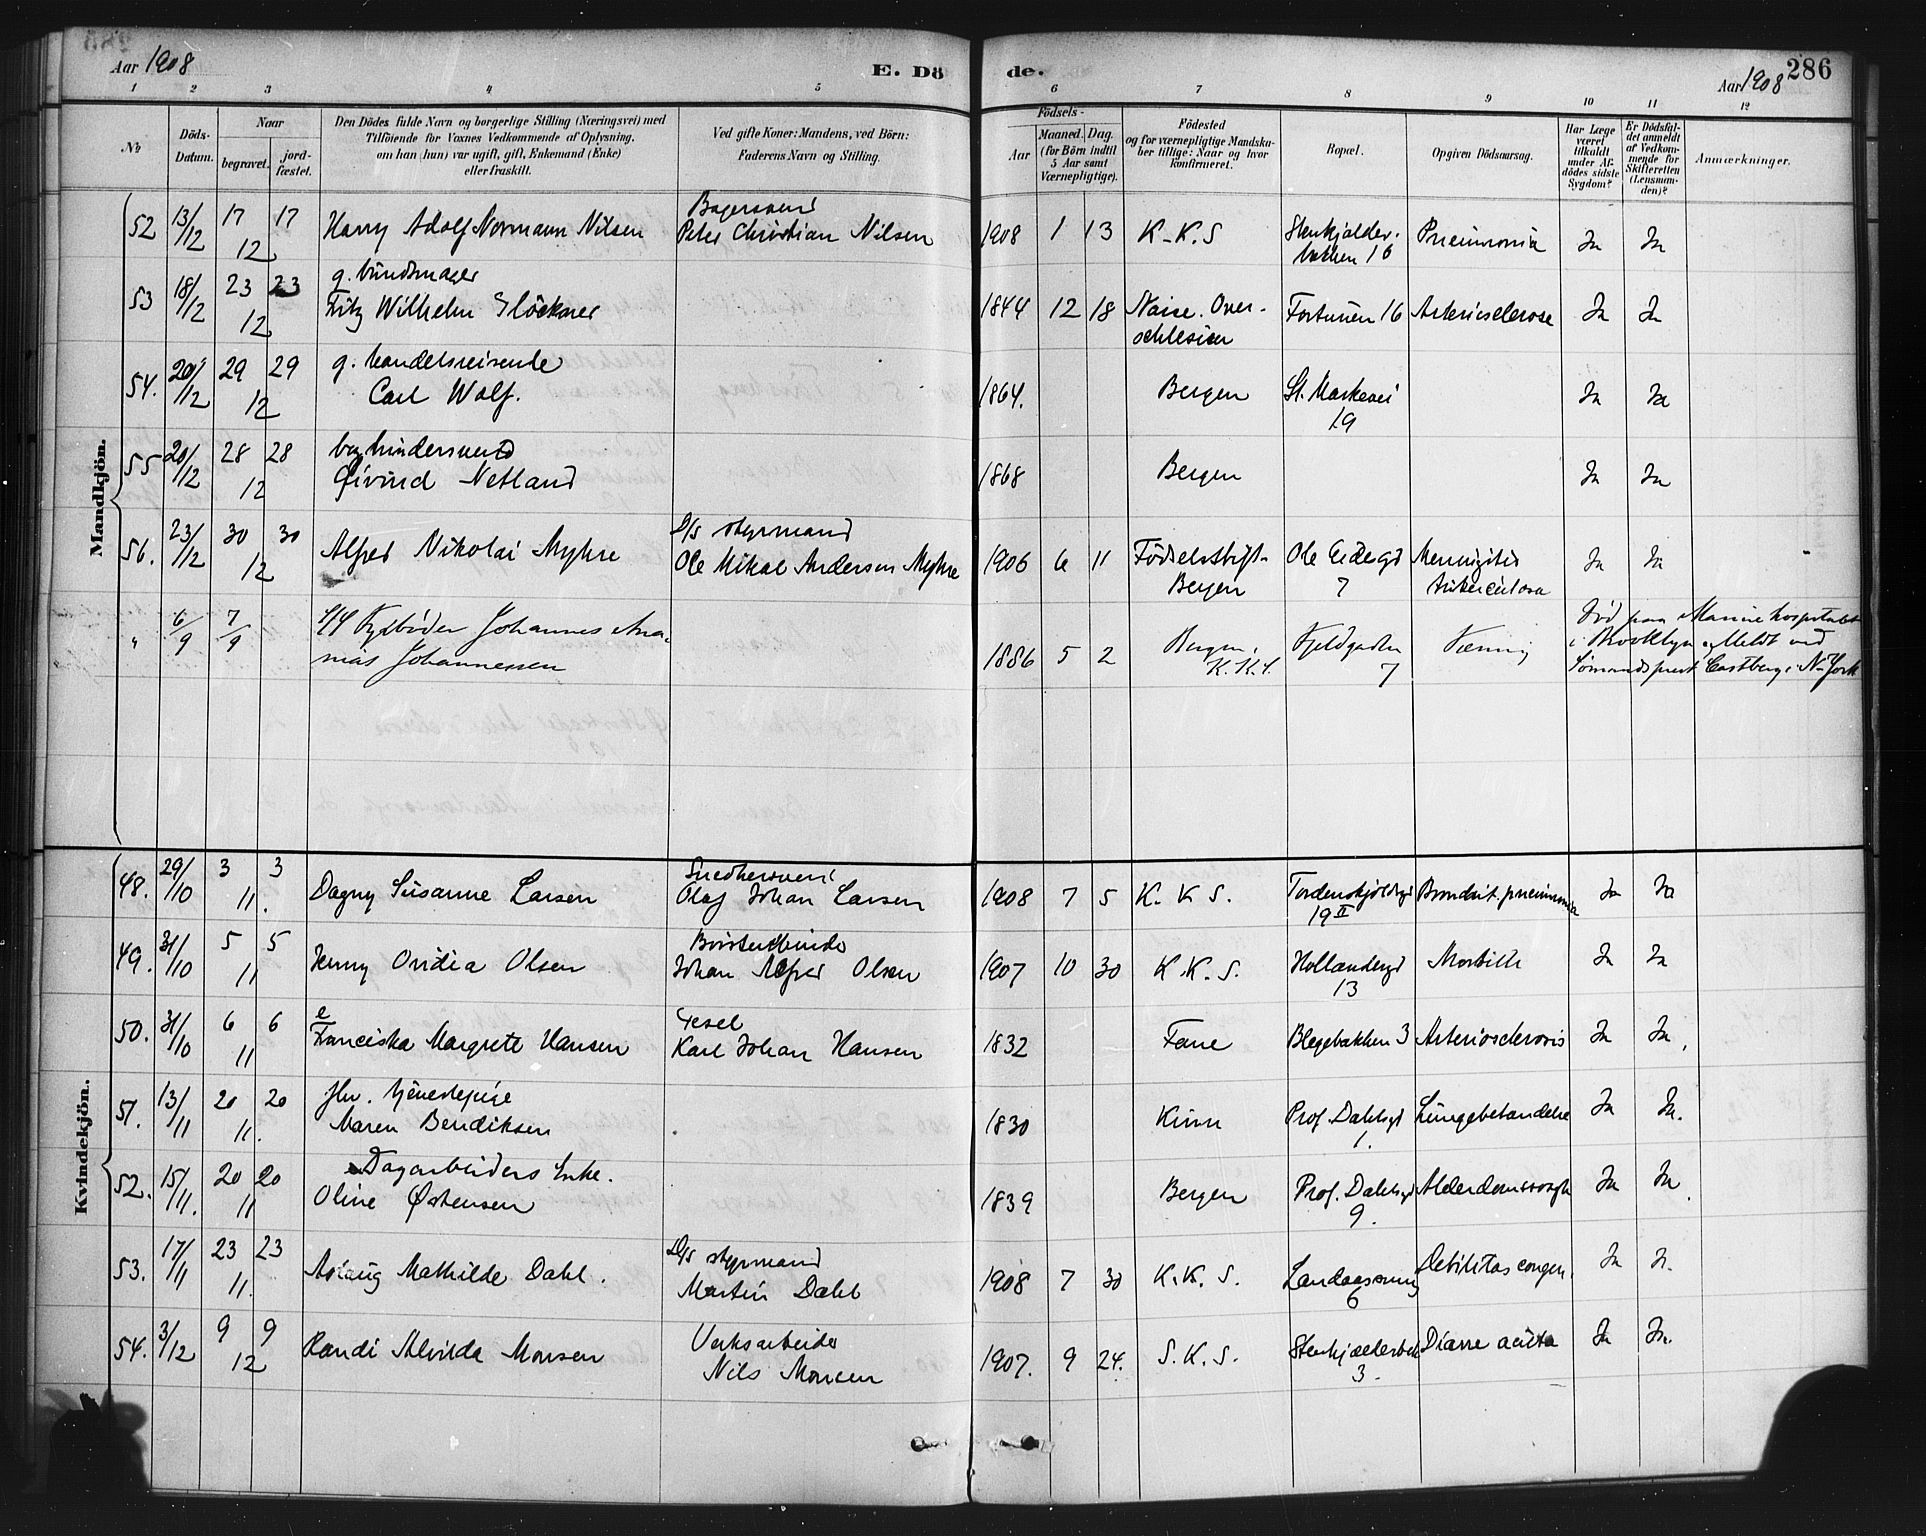 Aar 1908
E. Döde.
Aar 1908
286
1 2 3 4 5 6 7 8 9 10 11 12
No
Döds-Datum.
Naar
begravet.
jord-fæstet.
Den Dödes fulde Navn og borgerlige Stilling (Næringsvei) med
Tilföiende for Voxnes Vedkommende af Oplysning.
om han (hun) var ugift, gift, Enkemand (Enke)
eller fraskilt.
Ved gifte Koner: Mandens, ved Börn:
Faderens Navn og Stilling.
Födsels-
Aar
Maaned. Dag.
(for Börn indtil
5 Aar samt
Værnepligtige).
Födested
og for værnepligtige Mandska-
ber tillige: Naar og hvor
konfirmeret.
Bopæl.
Opgiven Dödsaarsag.
Har Læge
været
tilkaldt
under Af-
dödes sidste
Sygdom?
Er Dödsfal-
det anmeldt
af Vedkom-
mende for
Skifteretten
(Lensman-
den)?
Anmærkninger.
Mandkjön.
Bagersvend
52 13/12 17 17 12 Harry Adolf Normann Nilsen Peter Christian Nilsen 1908 1 13 K.K.S Stenkjelder- Pneumonia Ja Ja
bakken 16
g. bundtmager
53 18/12 23 23 12 Fritz Wilhelm Glöckner 1844 12 18 Naise. Over- Fortunen 16 Arteriosclerose Ja Ja
schlesien
g. handelsreisende
54. 20/12 29 29 12 Carl Wolf. 1864. Bergen St. Markevei Ja Ja
19
bogbindersvend
55 20/12 28 28 12 Øivind Netland 1868 Bergen Ja Ja
D/s styrmand
56. 23/12 30 30 12 Alfred Nikolai Myhre Ole Mikal Andersen Myhre 1906 6 11 Fødselsstift- Ole Eides gd Meningitis Ja Ja
Bergen 7 tuberculosa
" 6/9 7/9 Fyrbøder Johannes Ana-
nias Johannessen 1886 5 2 Bergen, K.K.S. Fjeldgaden 7
Død paa Marinehospitalet
i Brooklyn. Meldt ved
Sømandsprest Castberg i N-York
Kvindekjön.
Snedkersvend
48. 29/10 3 3 11. Dagny Susanne Larsen Olaf Johan Larsen 1908 7 5 K. K S. Tordenskjoldsgd Bronchit. pneumonia Ja Ja
19 II
Børstenbinder
49. 31/10 5 5 11 Jenny Ovidia Olsen Johan Alfred Olsen 1907 10 30 K.K. S. Hollendergd Morbilli Ja Ja
13
e
50. 31/10 6 6 11 Franciska Margrete Hansen Karl Johan Hansen 1832 Fane Blegebakken 3 Arteriosclerosis Ja Ja.
fhv. tjenestepige
51. 13/11 20 20 11. Maren Bendiksen 1830 Kinn Prof. Dahlsgd Lungebetændelse Ja Ja.
1.
Dagarbeiders Enke.
52. 15/11. 20 20 11 Oline Østensen 1839 Bergen Prof. Dahlsgd Alderdomssvagh Ja Ja.
9.
D/s styrmand
53. 17/11 23 23 11. Aslaug Mathilde Dahl. Martin Dahl 1908 7 30 K.K. S. Landaassving Debilitas congen. Ja Ja.
6
Verksarbeider
54. 3/12 9 9 12 Randi Alvilda Monsen Nils Monsen 1907. 9 24. S.K.S. Stenkjelderbak Diarre acuta Ja Ja.
3.